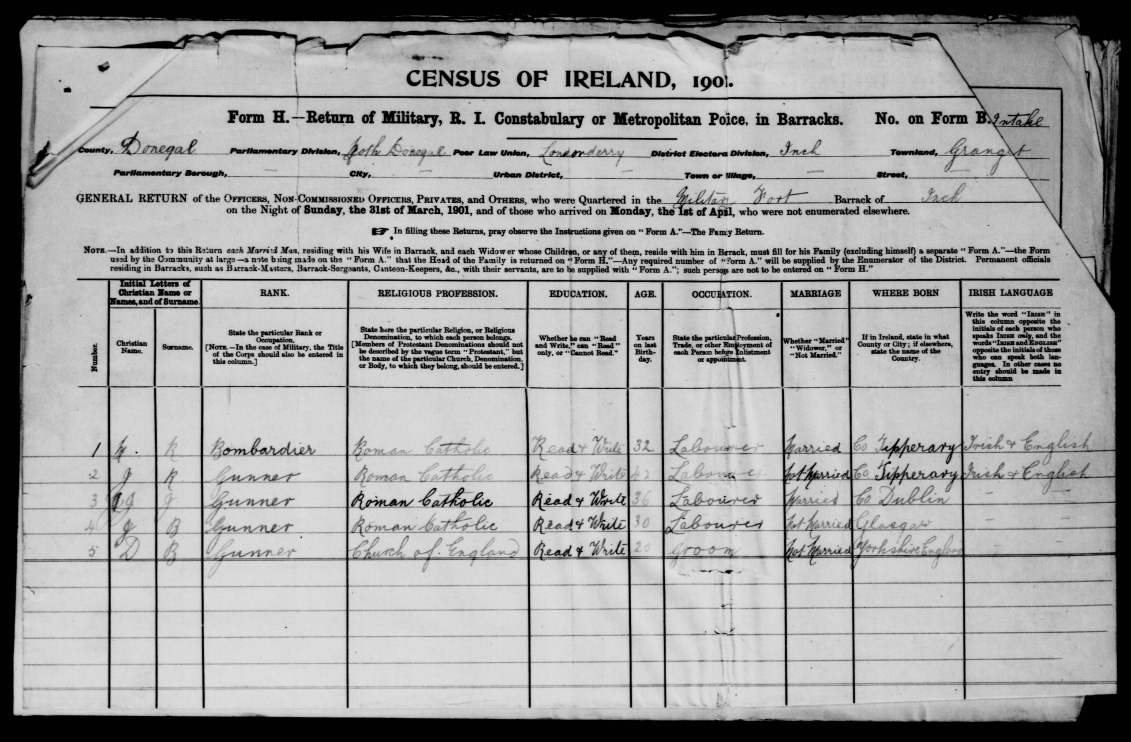 CENSUS OF IRELAND, 1901.
Form H.—Return of Military, R. I. Constabulary or Metropolitan Poice, in Barracks. No. on Form B. Intake
County, Donegal Parliamentary Division, Noth Donegal Poor Law Union, Londonderry District Electora Division, Inch Townland, Grange
Parliamentary Borough, — City, — Urban District, — Town or Village, — Street, —
GENERAL RETURN of the OFFICERS, NON-COMMISSIONED OFFICERS, PRIVATES, and OTHERS, who were Quartered in the Military Fort Barrack of Inch
on the Night of Sunday, the 31st of March, 1901, and of those who arrived on Monday, the 1st of April, who were not enumerated elsewhere.
☞ In filling these Returns, pray observe the Instructions given on "Form A."—The Famy Return.
NOTE.—In addition to this Return each Married Man, residing with his Wife in Barrack, and each Widower whose Children, or any of them, reside with him in Barrack, must fill for his Family (excluding himself) a separate "Form A."—the Form
used by the Community at large—a note being made on the "Form A." that the Head of the Family is returned on "Form H."—Any required number of "Form A." will be supplied by the Enumerator of the District. Permanent officials
residing in Barracks, such as Barrack-Masters, Barrack-Sergeants, Canteen-Keepers, &c., with their servants, are to be supplied with "Form A."; such persons are not to be entered on "Form H."
Number. Initial Letters of Christian Name or Names, and of Surname. RANK. RELIGIOUS PROFESSION. EDUCATION. AGE. OCCUPATION. MARRIAGE WHERE BORN IRISH LANGUAGE
Christian Name. Surname. State the particular Rank or Occupation. [NOTE.—In the case of Military, the Title of the Corps should also be entered in this column.]
State here the particular Religion, or Religious Denomination, to which each person belongs. [Members of Protestant Denominations should not be described by the vague term "Protestant," but the name of the particular Church, Denomination, or Body, to which they belong, should be entered.]
Whether he can "Read and Write," can "Read" only, or "Cannot Read."
Years on last Birth-day.
State the particular Profession, Trade, or other Employment of each Person before Enlistment or appointment.
Whether "Married" "Widower," or "Not Married."
If in Ireland, state in what County or City; if elsewhere, state the name of the Country.
Write the word "IRISH" in this column opposite the initials of each person who speaks IRISH only, and the words "IRISH and ENGLISH" opposite the initials of those who can speak both languages. In other cases no entry should be made in this column
1 K Bombardier Roman Catholic Read & Write 32 Labourer Married Co Tipperary Irish & English
2 J K Gunner Roman Catholic Read & Write Labourer Not Married Co. Tipperary Irish & English
3 J Gunner Roman Catholic Read & Write 36 Labourer Married Co Dublin — —
4 J B Gunner Roman Catholic Read & Write 30 Labourer Not Married Glasgow — —
5 D B Gunner Church of England Read & Write Groom Not Married Yorkshire England — —